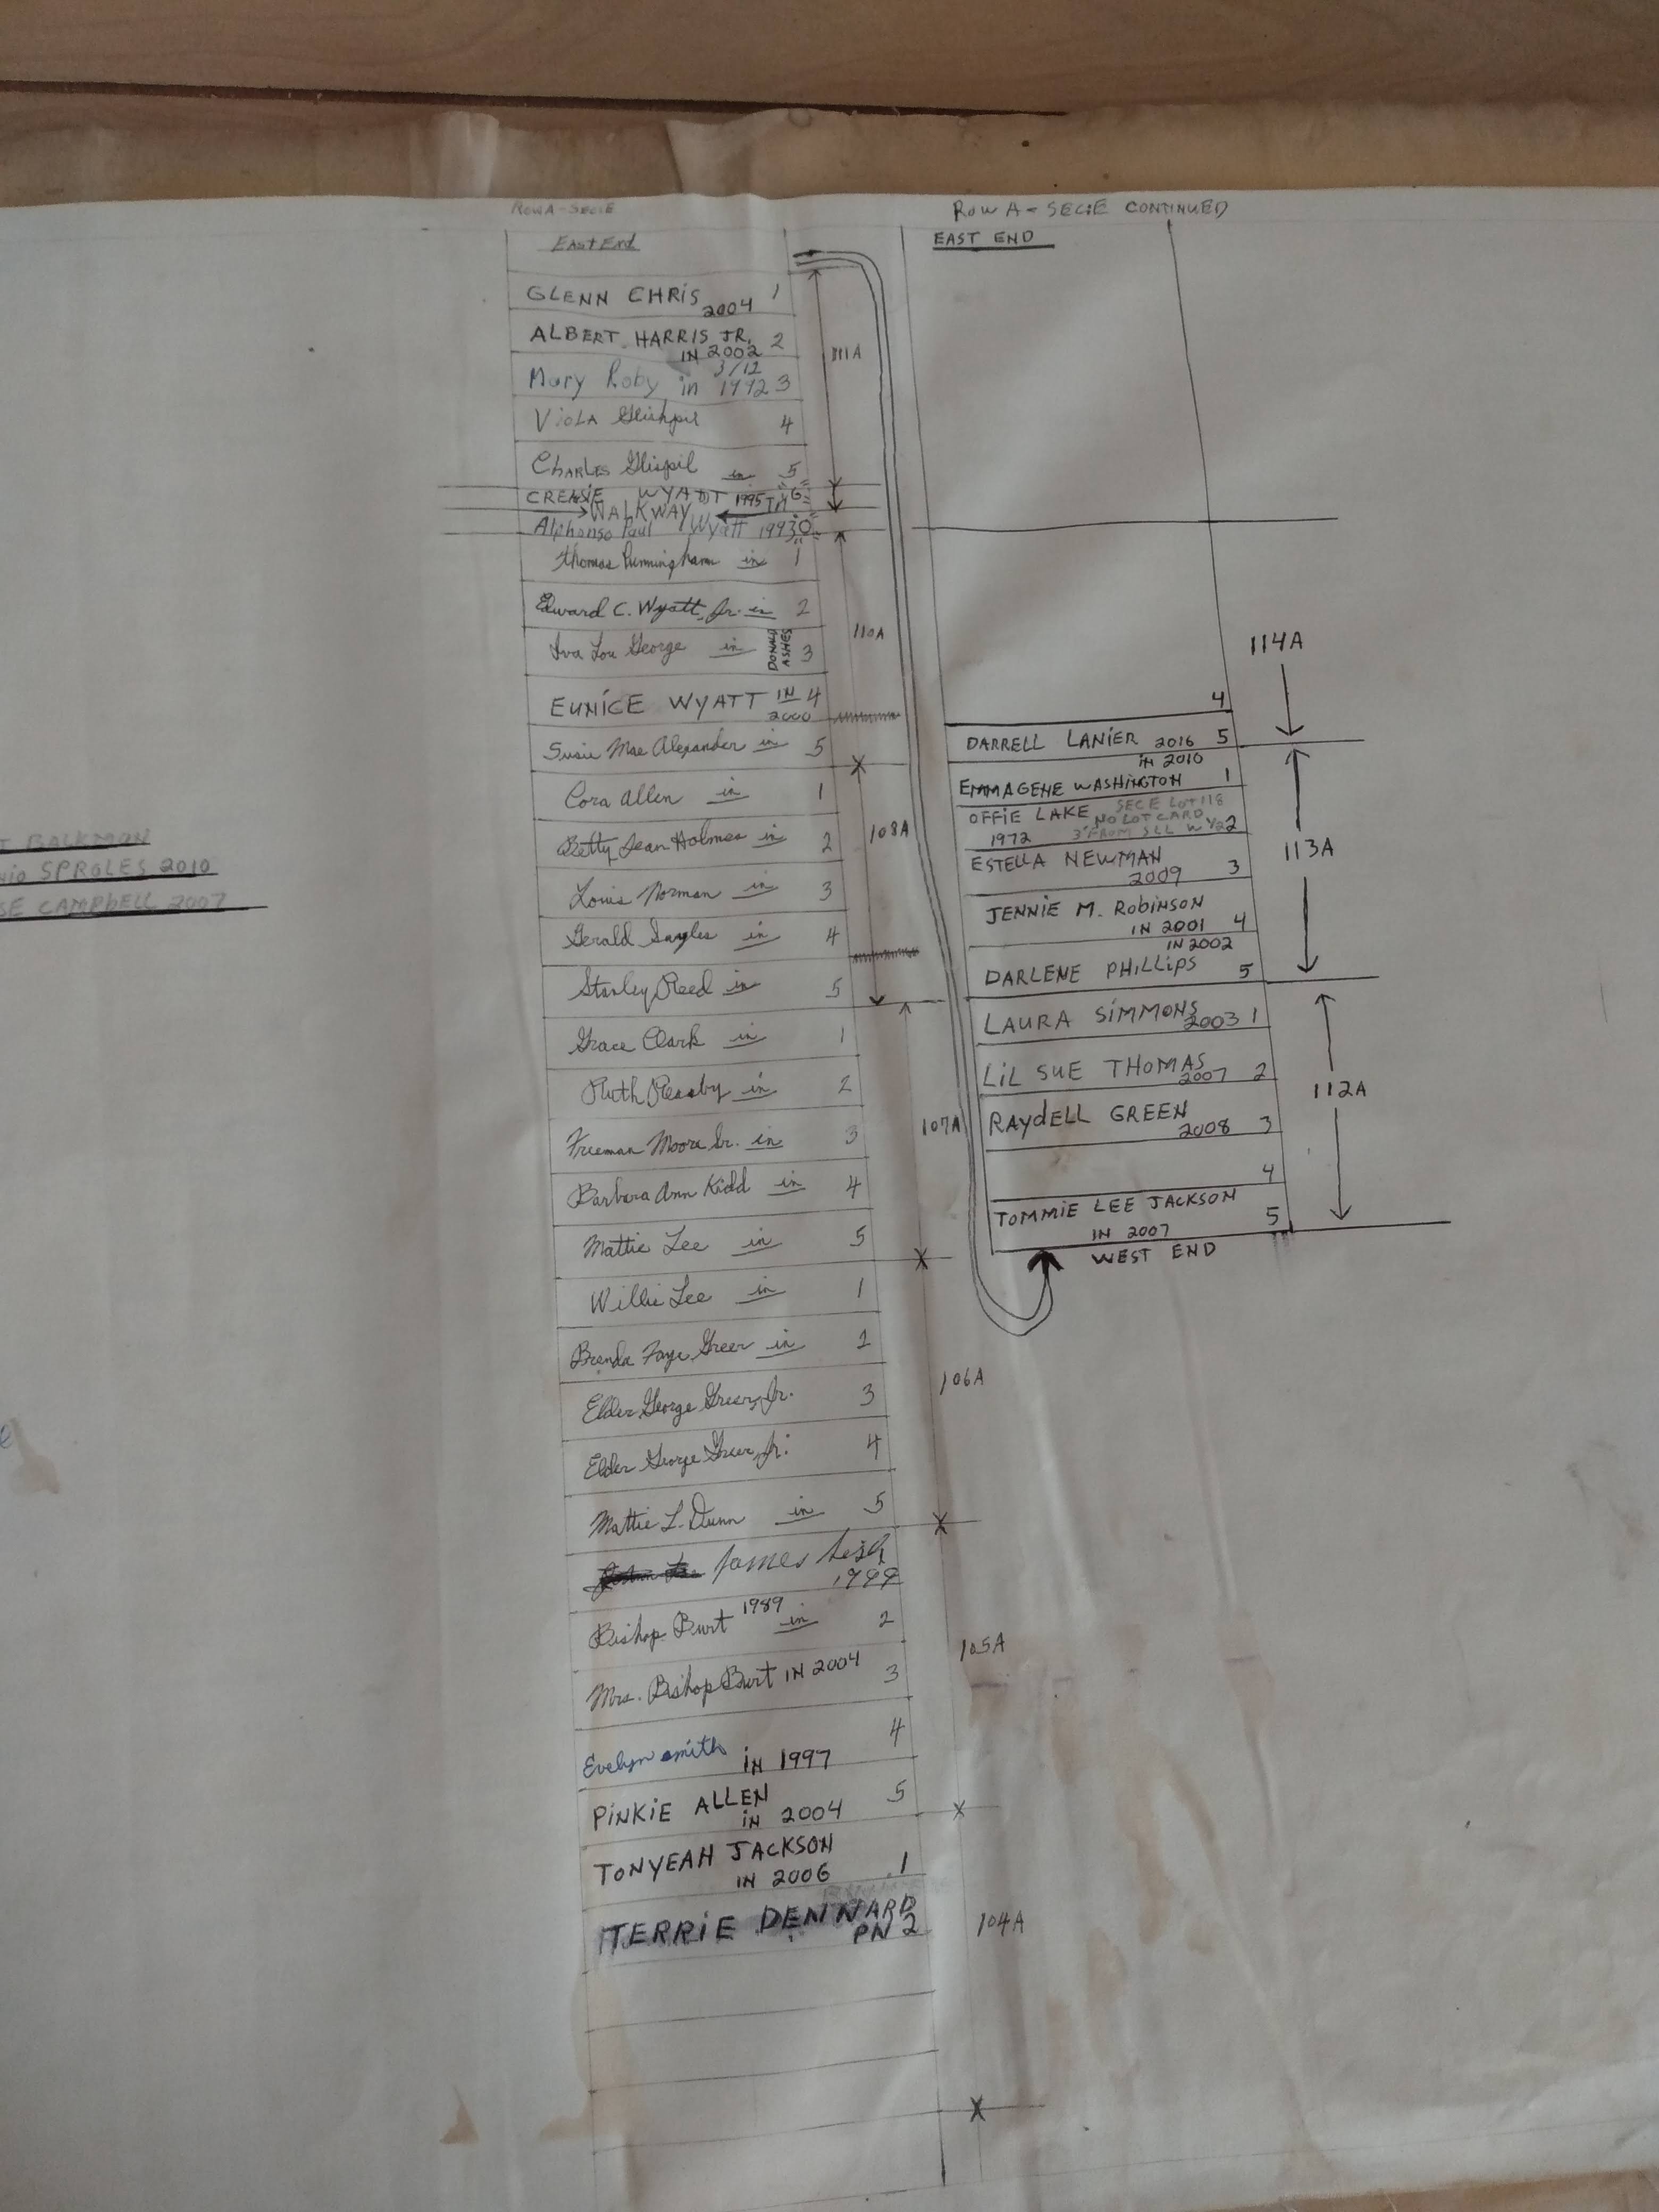 ROW A - SEC:E
East End
GLENN CHRIS 1
2004
ALBERT HARRIS JR. 2
IN 2002
3/12
Mary Roby in 1992 3
VIOLA 4
CHARLES Glispil in 5
CREASIE WYATT 1995 6
WALKWAY
Alphonso Paul Wyatt 1993 0
Thomas Cunningham in 1
Edward C. Wyatt, Jr. in 2
Iva Lou George in DONALD ASHES 3
EUNICE WYATT IN 4
2000
Susie Mae Alexander in 5
Cora Allen in 1
Betty Jean Holmes in 2
Louis Norman in 3
Gerald in 4
Stanley Reed in 5
Grace Clark in 1
Ruth in 2
Freeman Moore Sr. in 3
Barbara Ann Kidd in 4
Mattie Lee in 5
Willie Lee in 1
Brenda Faye Greer in 2
Elder George Greer, Jr. 3
Elder George Greer, Jr. 4
Mattie L. Dunn in 5
James
1999
Bishop Burt 1989 in 2
Mrs. Bishop Burt IN 2004 3
4
Evelyn Smith IN 1997
PINKIE ALLEN 5
IN 2004
TONYEAH JACKSON
IN 2006 1
TERRIE DENNARD
PN 2
111A
110A
108A
107A
106A
105A
104A
ROW A - SEC:E CONTINUED
EAST END
4
DARRELL LANIER 2016 5
IN 2010
EMMAGENE WASHINGTON 1
OFFIE LAKE SEC E LOT 118
NO LOT CARD
1972 3' FROM 2
ESTELLA NEWMAN
2009 3
JENNIE M. ROBINSON
IN 2001 4
IN 2002
DARLENE PHILLIPS 5
LAURA SIMMONS
2003 1
LIL SUE THOMAS
2007 2
RAYDELL GREEN
2008 3
4
TOMMIE LEE JACKSON
IN 2007 5
WEST END
114A
113A
112A
BALKMON
SPROLES 2010
CAMPBELL 2007